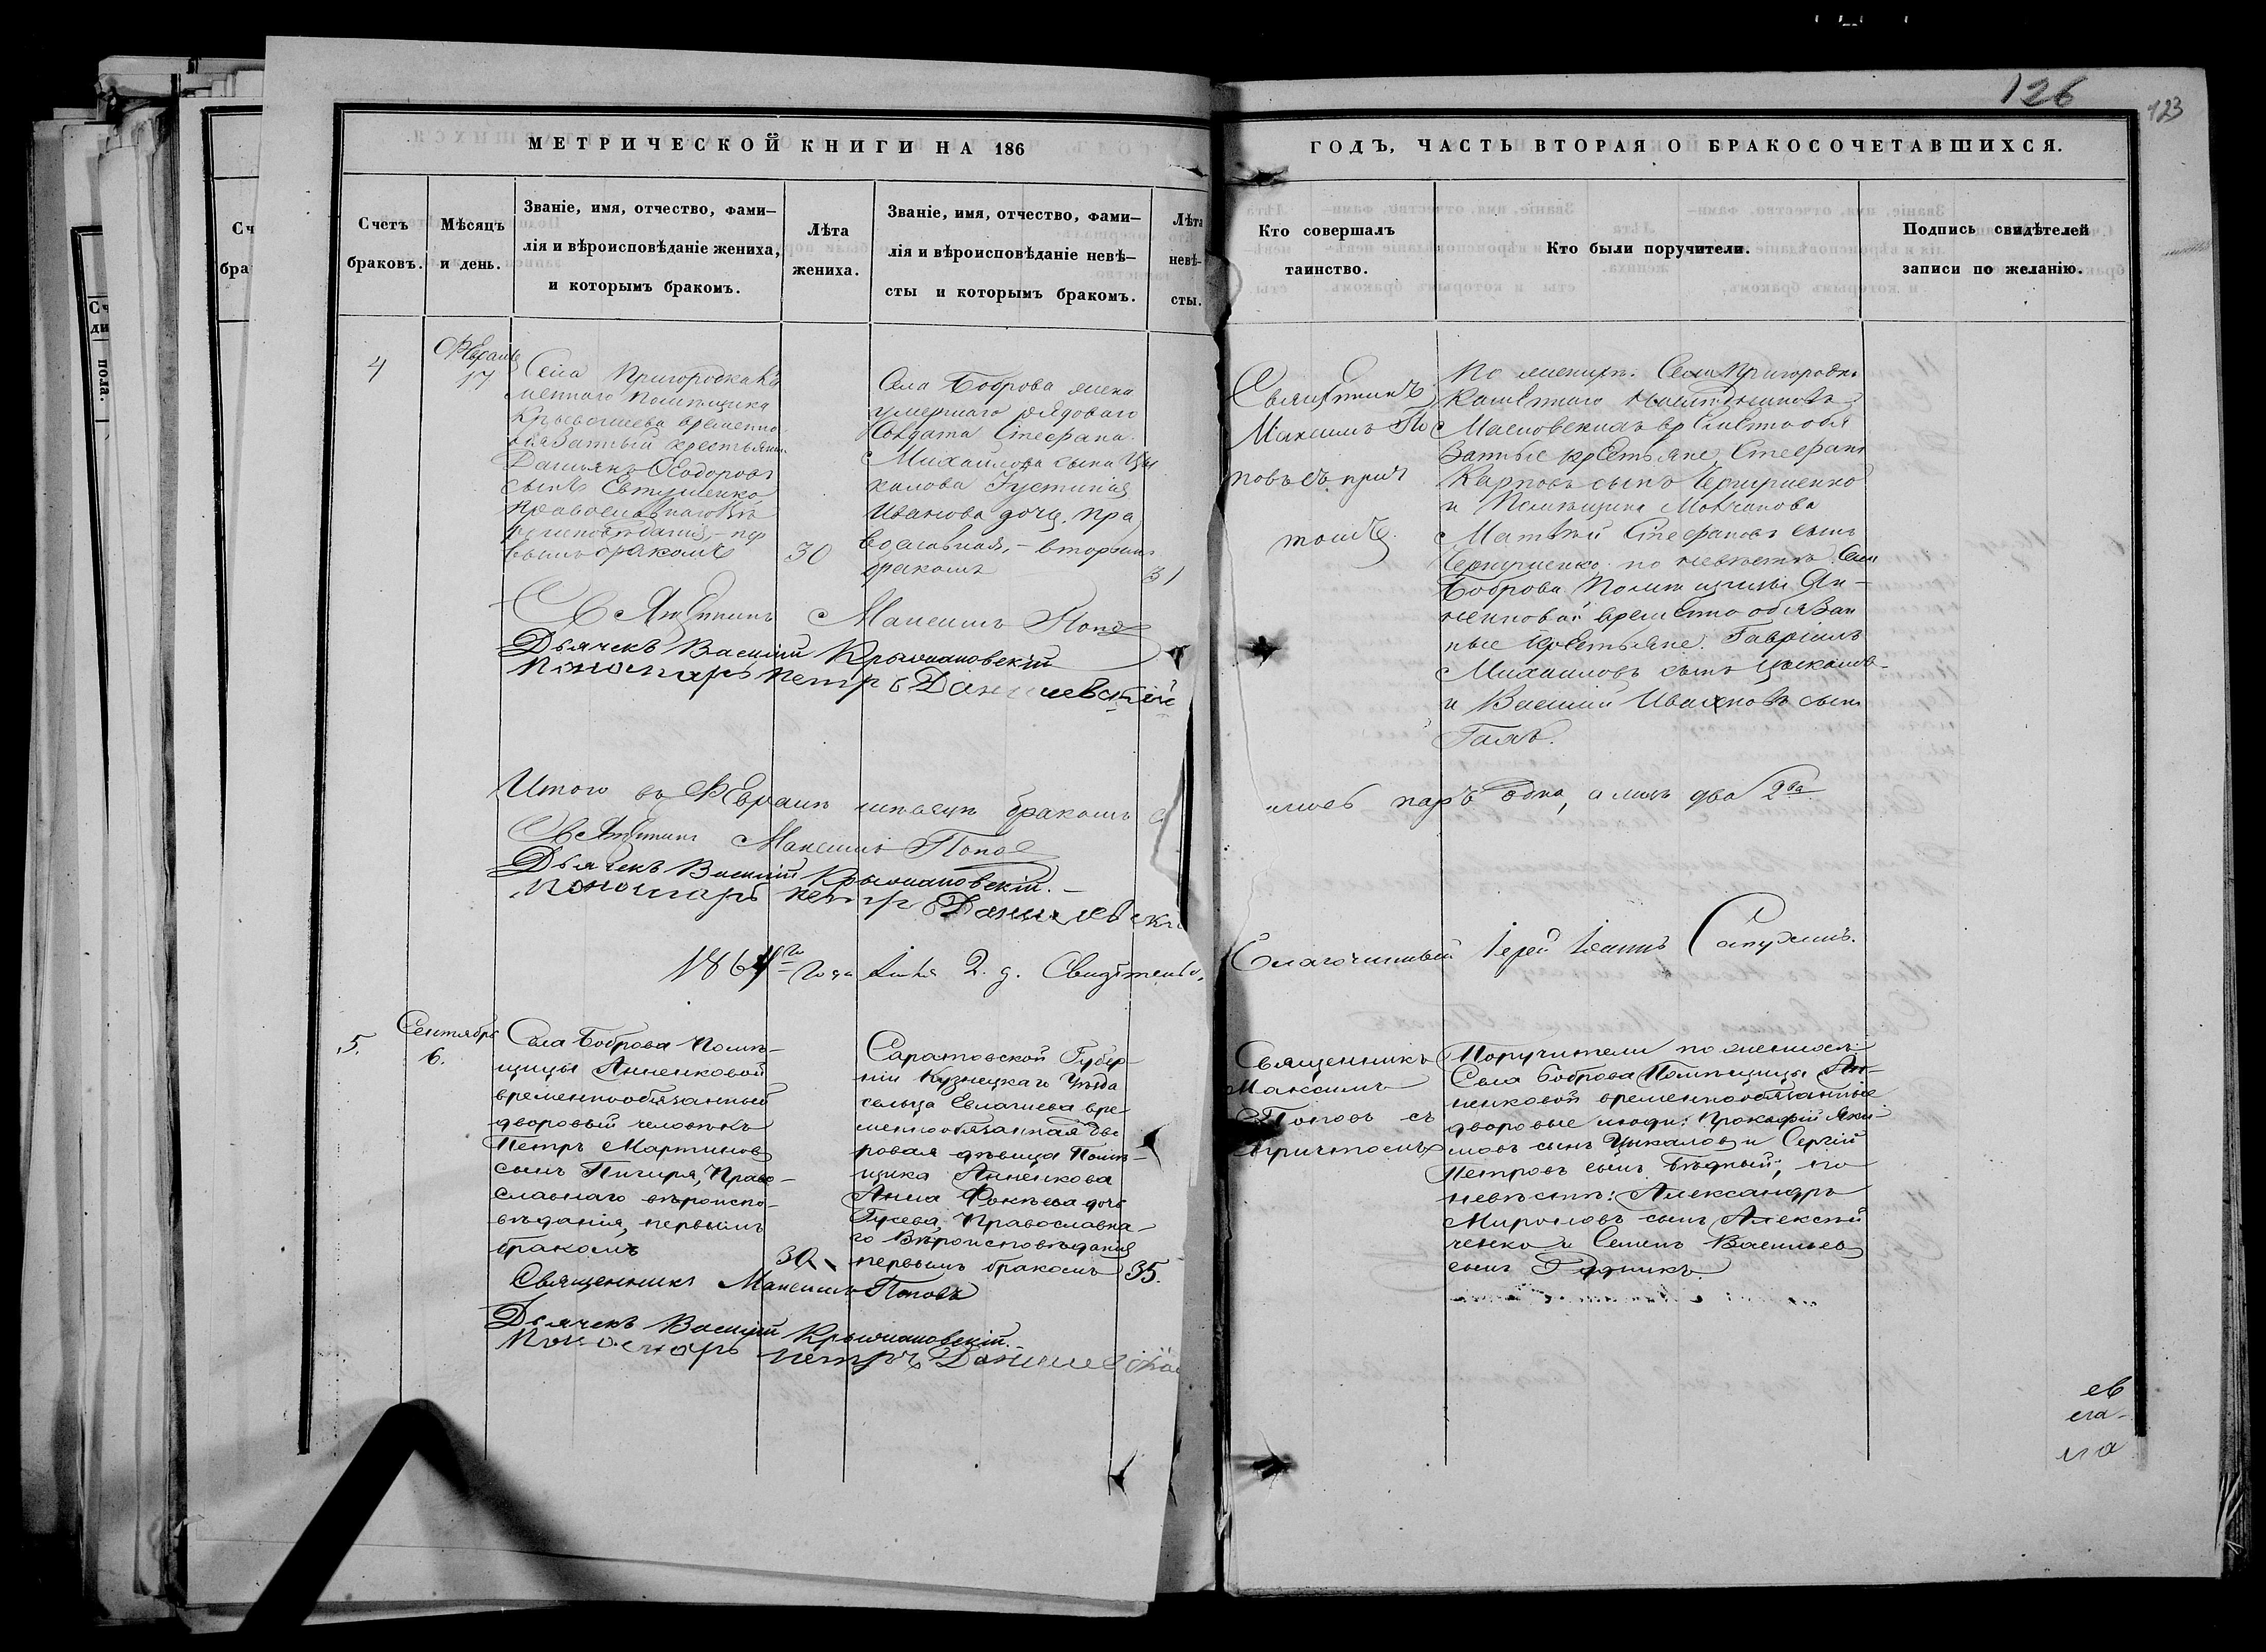 126
123
МЕТРИЧЕСКОЙ КНИГИ НА 186
ГОДЪ, ЧАСТЬ ВТОРАЯ О БРАКОСОЧЕТАВШИХСЯ.
Счетъ
браковъ.
Мѣсяцъ
и день.
Званіе, имя, отчество, фами–
лія и вѣроисповѣданіе жениха,
и которымъ бракомъ.
Лѣта
жениха.
Званіе, имя, отчество, фами–
лія и вѣроисповѣданіе невѣ–
сты и которымъ бракомъ.
Лѣта
невѣ-
сты.
Кто совершалъ
таинство.
Кто были поручители.
Подпись свидѣтелей
записи по желанію.
4
Февраль
17
Села Пригородка
меннаго Помѣщика
временно
обязанный крестьянинъ
Дамьянъ Ѳеодоровъ
сынъ Евтушенко
православнаго Вѣ
роисповѣданія, – пер
вымъ бракомъ
30
Села Боброва жена
умершаго рядоваго
Солдата Стефана
Михайлова сына Цы
калова Іустинія
Иванова дочь. пра
вославная, – вторымъ
бракомъ
31
Священникъ
Максимъ По
повъ съ прич
томъ
По женихѣ: Села Пригородка
Масловскихъ временнообя
занные крестьяне Стефанъ
Карповъ сынъ
и Помѣщика Молчанова
Матвѣй Стефановъ сынъ
по невѣстѣ Села
Боброва Помѣщицы Ан–
ненковой временнообязан
ные крестьяне. Гавріилъ
Михаиловъ сынъ Цыкаловъ
и Василій Ивановъ сынъ
Галъ.
Священникъ Максимъ Поповъ
Дьячекъ Василій Крыжановскій
Пономарь Петръ Данилевскій
Итого въ Февралѣ мѣсяцѣ бракомъ
паръ одна, а лицъ два 2ва
Священникъ Максимъ Поповъ
Дьячекъ Василій Крыжановскій. –
Пономарь Петръ Данилевскі
1864го Года 2. д. Свидѣтельс.
Благочинный Іерей Іоаннъ
5.
Сентябрь
6.
Села Боброва Помѣ–
щицы Анненковой
временнообязанный
дворовый человѣкъ
Петръ Мартиновъ
сынъ Пигиря, Право–
славнаго вѣроиспо–
вѣданія, первымъ
бракомъ
30
Саратовской Губер–
ніи Кузнецкаго Уѣзда
сельца Евлашева вре–
меннообязанная дво
ровая дѣвица Помѣ–
щика Анненкова
Анна Фокѣева дочь
Гусева, Православна–
го Вѣроисповѣданія
первымъ бракомъ
35.
Священникъ
Максимъ
Поповъ съ
Причтомъ
Поручители по женихѣ:
Села Боброва Помѣщицы Ан–
ненковой временнообязанные
дворовые люди: Прокофій Яки–
мовъ сынъ Цикаловъ и Сергій
Петровъ сынъ Бѣдный; по
невѣстѣ: Александръ
Мироновъ сынъ Алексѣй
ченко и Семенъ Васильевъ
сынъ Рудникъ.
Священникъ Максимъ Поповъ
Дьячекъ Василій Крыжановскій.
Пономарь Петръ Данилевскій
ев
ела–
ла